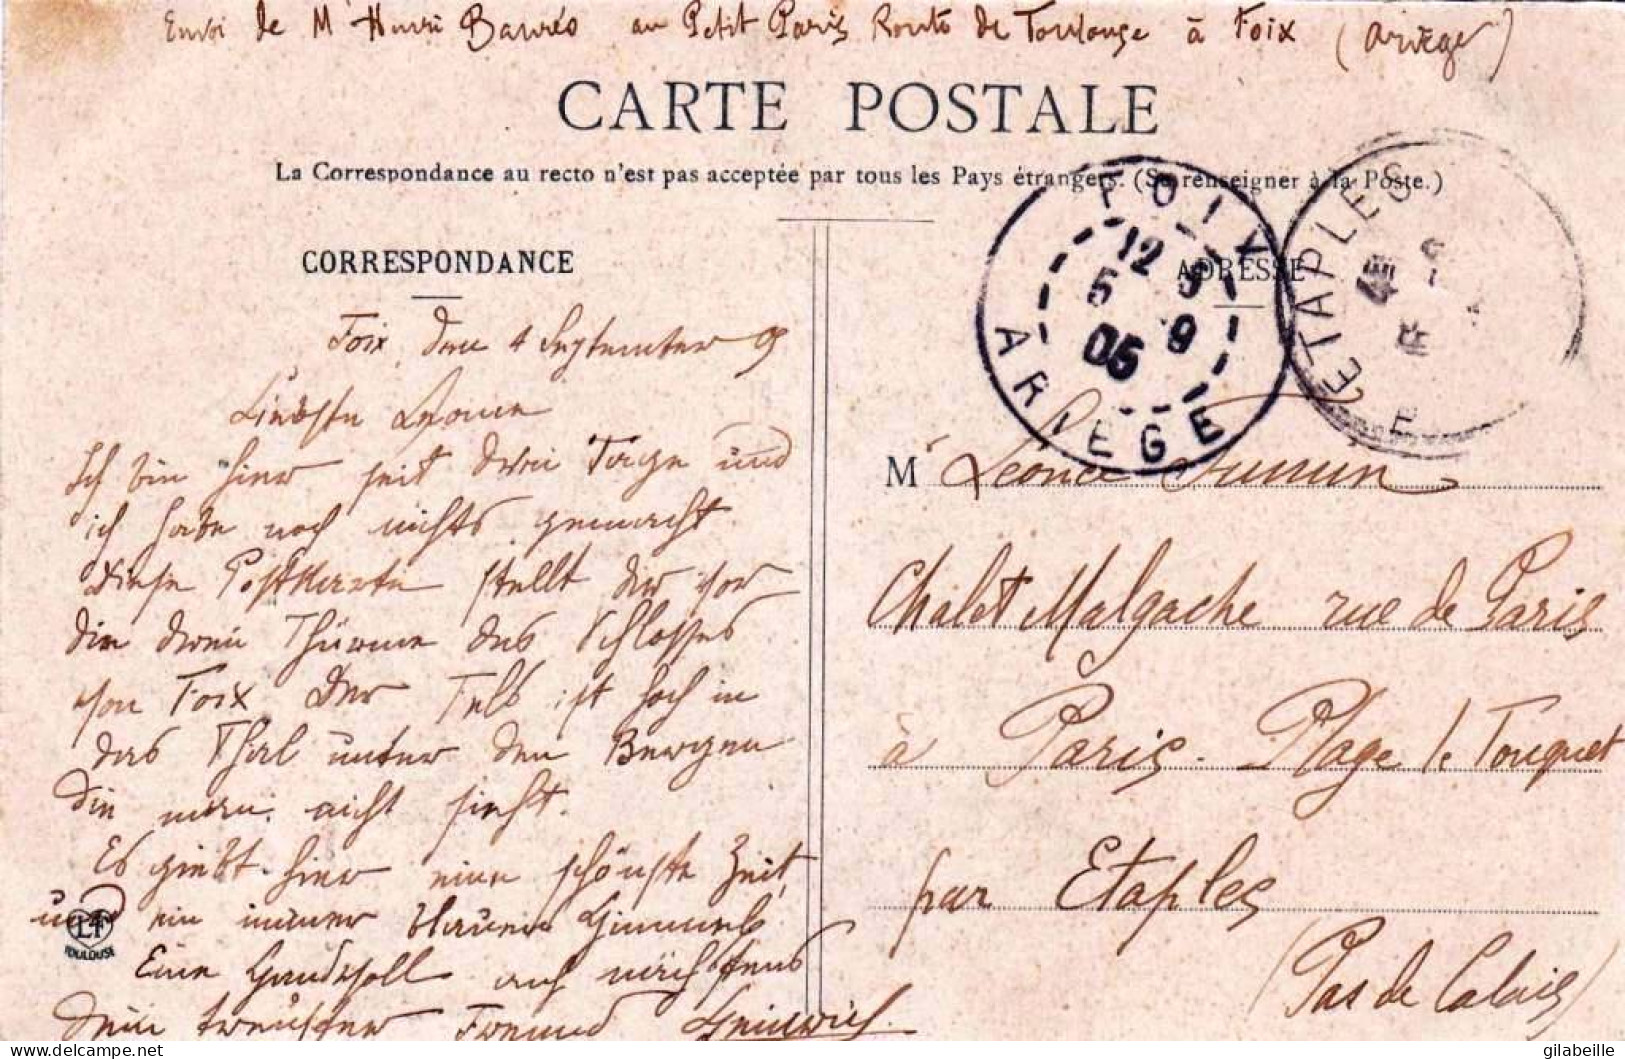 Envoi de Mr Henri Baurès au Petit Paris Route de Toulouse à Foix (Ariège)
CARTE POSTALE
La Correspondance au recto n'est pas acceptée par tous les Pays étrangers. (Se renseigner à la Poste.)
CORRESPONDANCE
Foix, den 4 September
Liebste
Ich bin hier seit drei Tage und
ich habe noch nichts gemacht
Diese Postkarte stellt dir vor
die drei Thürme des Schlosses
von Foix Der Fels ist hoch in
das Thal unter den Bergen
die man nicht sieht.
Es giebt hier eine schönste Zeit,
und ein immer blauer Himmel
Eine Handvoll auf nächstens
dein treuster Freund Heinrich
LF
TOULOUSE
ADRESSE
FOIX
12
5 9
05
ARIEGE
ETAPLES
M Léonce
Chalet Malgache rue de Paris
à Paris-Plage le Touquet
par Etaples
(Pas de Calais)
gilabeille